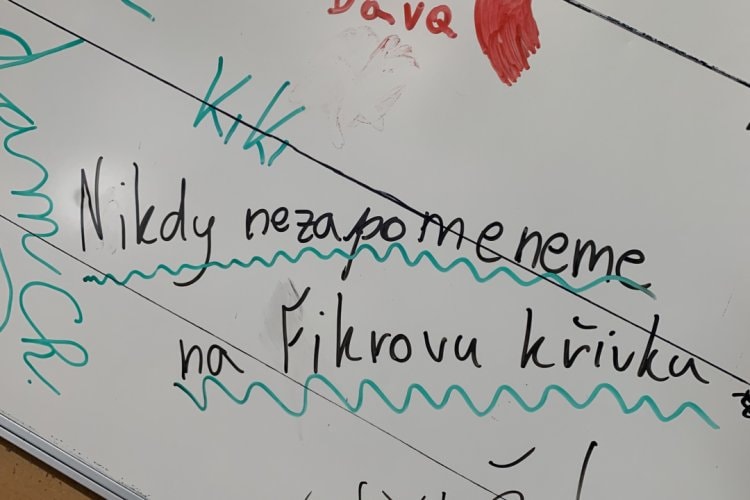 Dava
Kiki
Nikdy nezapomeneme
na Fikrovu křivku